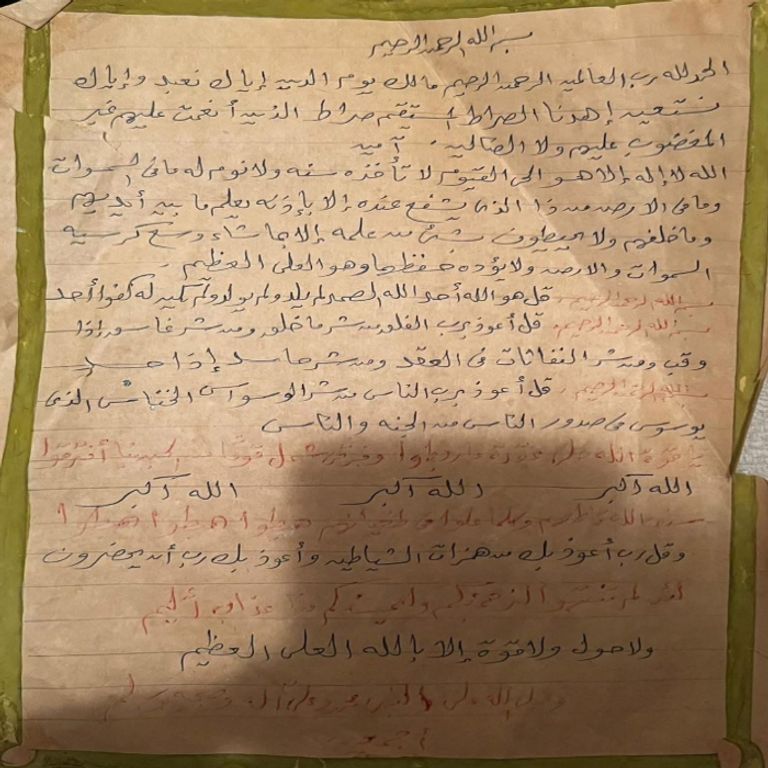 بسم الله الرحمن الرحيم
الحمد لله رب العالمين الرحمن الرحيم مالك يوم الدين إياك نعبد وإياك
نستعين إهدنا الصراط المستقيم صراط الذين أنعمت عليهم غير
المغضوب عليهم ولا الضالين . آمين
الله لا إله إلا هو الحى القيوم لا تأخذه سنه ولا نوم له ما فى السموات
وما فى الارض من ذا الذى يشفع عنده إلا بإذنه يعلم ما بين أيديهم
وما خلفهم ولا يحيطون بشئ من علمه إلا بما شاء وسع كرسيه
السموات والارض ولا يؤده حفظهما وهو العلى العظيم .
بسم الله الرحمن الرحيم . قل هو الله أحد الله الصمد لم يلد ولم يولد ولم يكن له كفوا أحد
بسم الله الرحمن الرحيم . قل أعوذ برب الفلق من شر ما خلق ومن شر غاسق إذا
وقب ومن شر النفاثات فى العقد ومن شر حاسد إذا حسد
بسم الله الرحمن الرحيم . قل أعوذ برب الناس من شر الوسواس الخناس الذى
يوسوس فى صدور الناس من الجنه والناس
الله أكبر الله أكبر الله أكبر
وقل رب أعوذ بك من همزات الشياطين وأعوذ بك رب أن يحضرون
لئن لم تنتهوا لنرجمنكم وليمسنكم منا عذاب أليم
ولا حول ولا قوة إلا بالله العلى العظيم